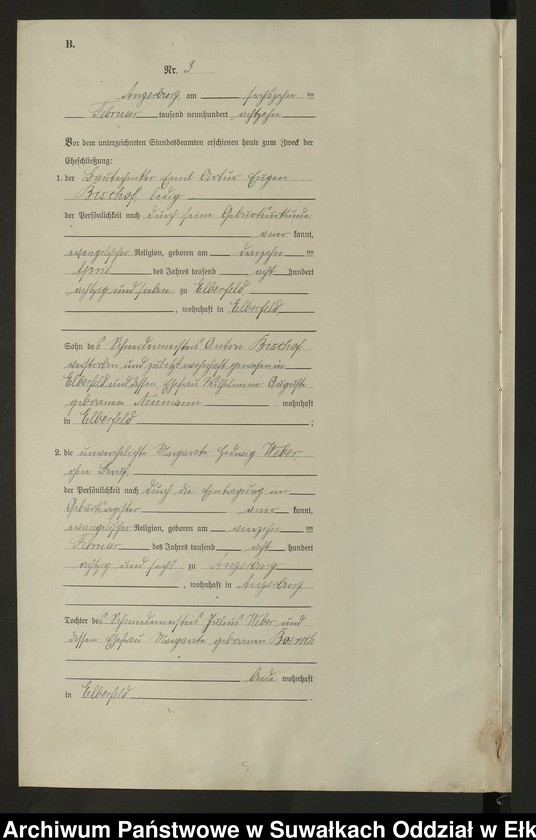 B.
Nr. 3
Angerburg, am sechszehn ten
Februar tausend neunhundert achtzehn
Vor dem unterzeichneten Standesbeamten erschienen heute zum Zweck der
Eheschließung:
1. der Bautechniker Emil Artur Eugen
Bischof, ledig
der Persönlichkeit nach durch seine Geburtsurkunde
aner kannt,
evangelischer Religion, geboren am dreizehn ten
April des Jahres tausend acht hundert
achtzig und sieben zu Elberfeld
, wohnhaft in Elberfeld
Sohn des Schneidermeisters Anton Bischof,
verstorben und zuletzt wohnhaft gewesen in
Elberfeld und dessen Ehefrau Wilhelmine Auguste
geborenen Neumann wohnhaft
in Elberfeld ;
2. die unverehelichte Margarete Hedwig Weber,
ohne Beruf,
der Persönlichkeit nach durch die Eintragung im
Geburtsregister aner kannt,
evangelischer Religion, geboren am vierzehn ten
Februar des Jahres tausend acht hundert
achtzig und sechs zu Angerburg
, wohnhaft in Angerburg
Tochter des Schneidermeisters Julius Weber und
dessen Ehefrau Margarete geborenen
wohnhaft
in Elberfeld .
Archiwum Państwowe w Suwałkach Oddział w Ełk